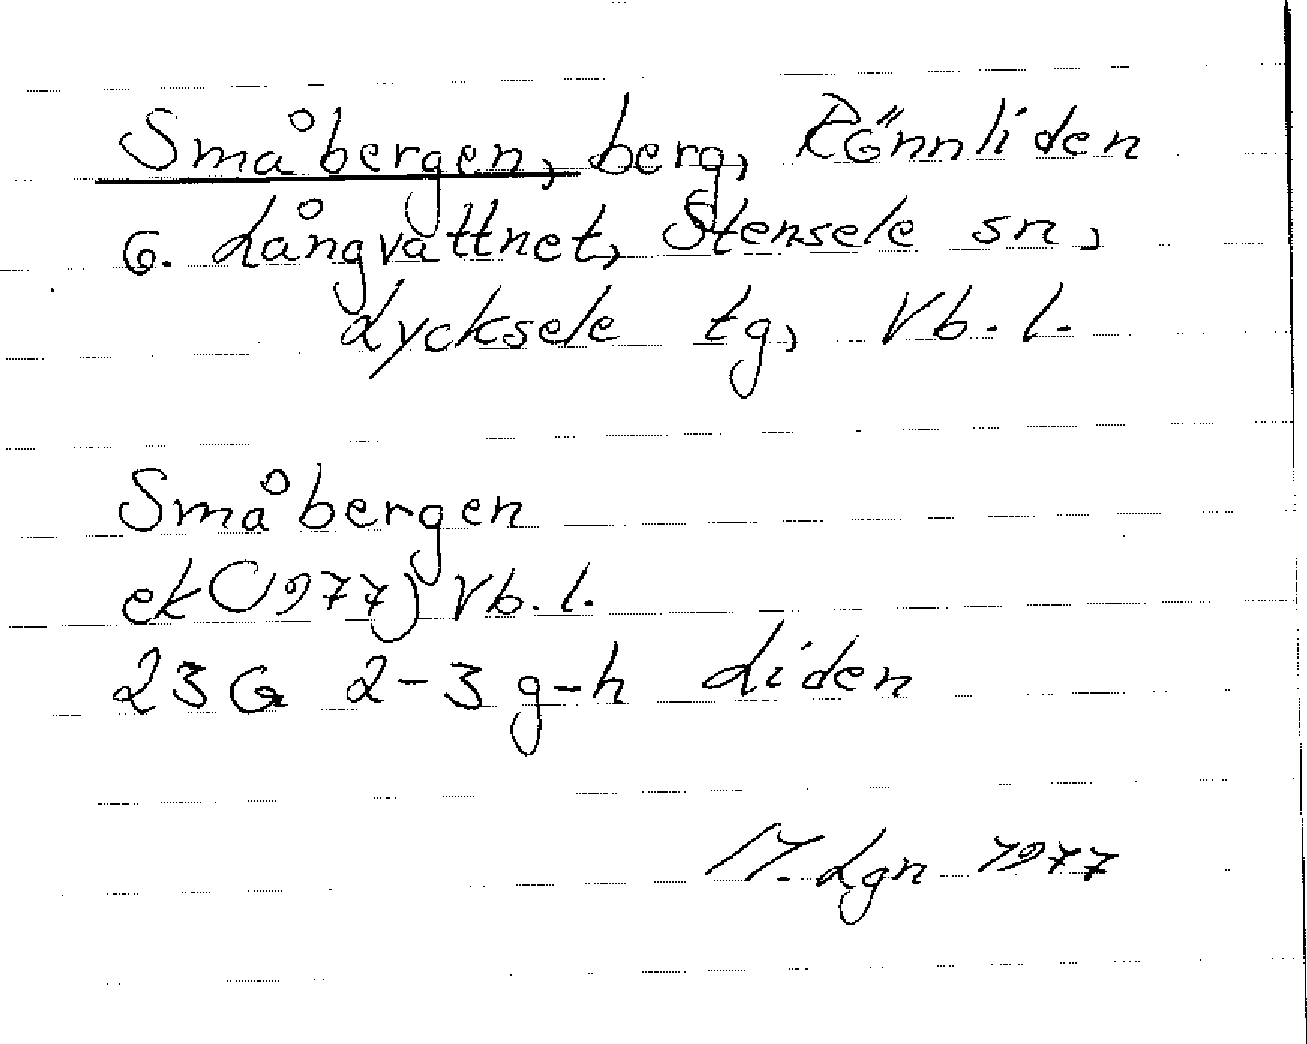 Småbergen, berg, Rönnliden
G. Långvattnet, Stensele sn,
Lycksele tg, Vb. l.
Småbergen
ek (1977) Vb. l.
23 G 2-3 g-h Liden
M. Lgn 1977